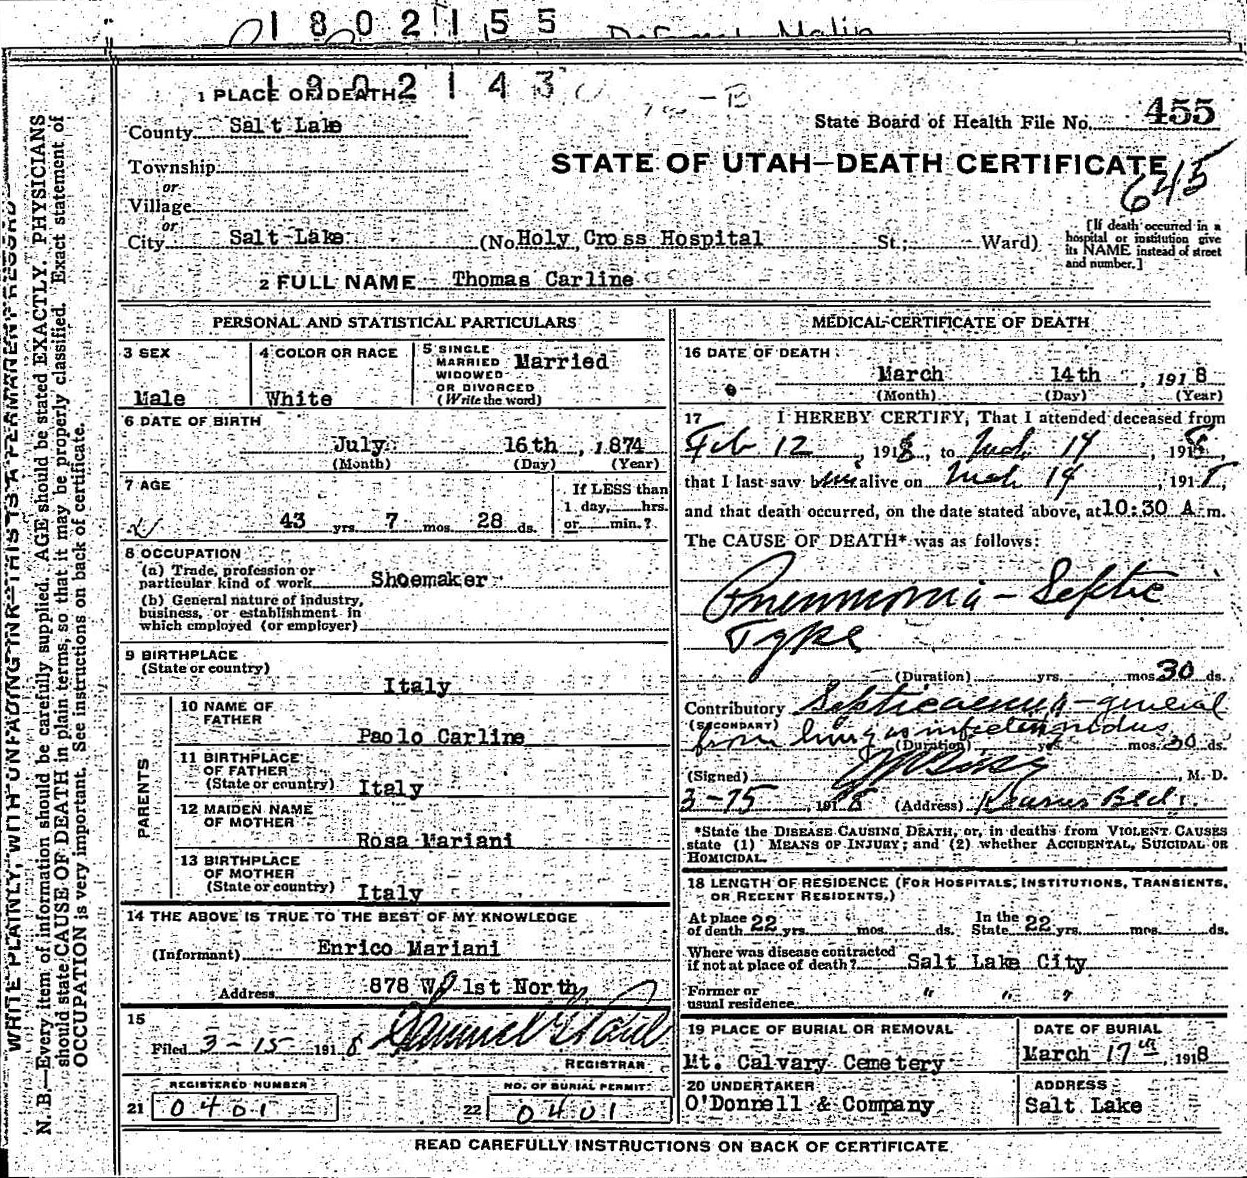 1802155
1802143
1 PLACE OF DEATH
County Salt Lake
State Board of Health File No. 455
Township
STATE OF UTAH—DEATH CERTIFICATE
or
645
Village
or
City Salt Lake (No Holy Cross Hospital St.; Ward)
[If death occurred in a hospital or institution give its NAME instead of street and number.]
2 FULL NAME Thomas Carline
PERSONAL AND STATISTICAL PARTICULARS
3 SEX
Male
4 COLOR OR RACE
White
5 SINGLE
MARRIED
WIDOWED
OR DIVORCED
(Write the word)
Married
6 DATE OF BIRTH
July 16th, 1874
(Month) (Day) (Year)
7 AGE
43 yrs. 7 mos. 28 ds.
If LESS than
1 day, hrs.
or min.?
8 OCCUPATION
(a) Trade, profession or
particular kind of work Shoemaker
(b) General nature of industry,
business, or establishment in
which employed (or employer)
9 BIRTHPLACE
(State or country)
Italy
PARENTS
10 NAME OF
FATHER
Paolo Carline
11 BIRTHPLACE
OF FATHER
(State or country) Italy
12 MAIDEN NAME
OF MOTHER
Rosa Mariani
13 BIRTHPLACE
OF MOTHER
(State or country) Italy
14 THE ABOVE IS TRUE TO THE BEST OF MY KNOWLEDGE
(Informant) Enrico Mariani
Address 878 W 1st North
15
Filed 3-15 1918
REGISTRAR
REGISTERED NUMBER
21 0401
NO. OF BURIAL PERMIT
22 0401
MEDICAL CERTIFICATE OF DEATH
16 DATE OF DEATH
March 14th, 1918
(Month) (Day) (Year)
17 I HEREBY CERTIFY, That I attended deceased from
Feb 12, 1918, to Mch 14, 1918,
that I last saw him alive on Mch 14, 1918,
and that death occurred, on the date stated above, at 10:30 A.m.
The CAUSE OF DEATH* was as follows:
Pneumonia - Septic
Type
(Duration) yrs. mos. 30 ds.
Contributory Septicaemia - general
(SECONDARY)
from lung as infecting nidus
(Duration) yrs. mos. 30 ds.
(Signed) , M. D.
3-15, 1918 (Address) Kearns Bldg.
*State the DISEASE CAUSING DEATH, or, in deaths from VIOLENT CAUSES
state (1) MEANS OF INJURY; and (2) whether ACCIDENTAL, SUICIDAL OR
HOMICIDAL.
18 LENGTH OF RESIDENCE (FOR HOSPITALS, INSTITUTIONS, TRANSIENTS,
OR RECENT RESIDENTS.)
At place
of death 22 yrs. mos. ds.
In the
State 22 yrs. mos. ds.
Where was disease contracted
if not at place of death? Salt Lake City
Former or
usual residence " " "
19 PLACE OF BURIAL OR REMOVAL
Mt. Calvary Cemetery
DATE OF BURIAL
March 17th 1918
20 UNDERTAKER
O'Donnell & Company
ADDRESS
Salt Lake
READ CAREFULLY INSTRUCTIONS ON BACK OF CERTIFICATE
WRITE PLAINLY, WITH UNFADING INK—THIS IS A PERMANENT RECORD
N. B.—Every item of information should be carefully supplied. AGE should be stated EXACTLY. PHYSICIANS
should state CAUSE OF DEATH in plain terms, so that it may be properly classified. Exact statement of
OCCUPATION is very important. See instructions on back of certificate.